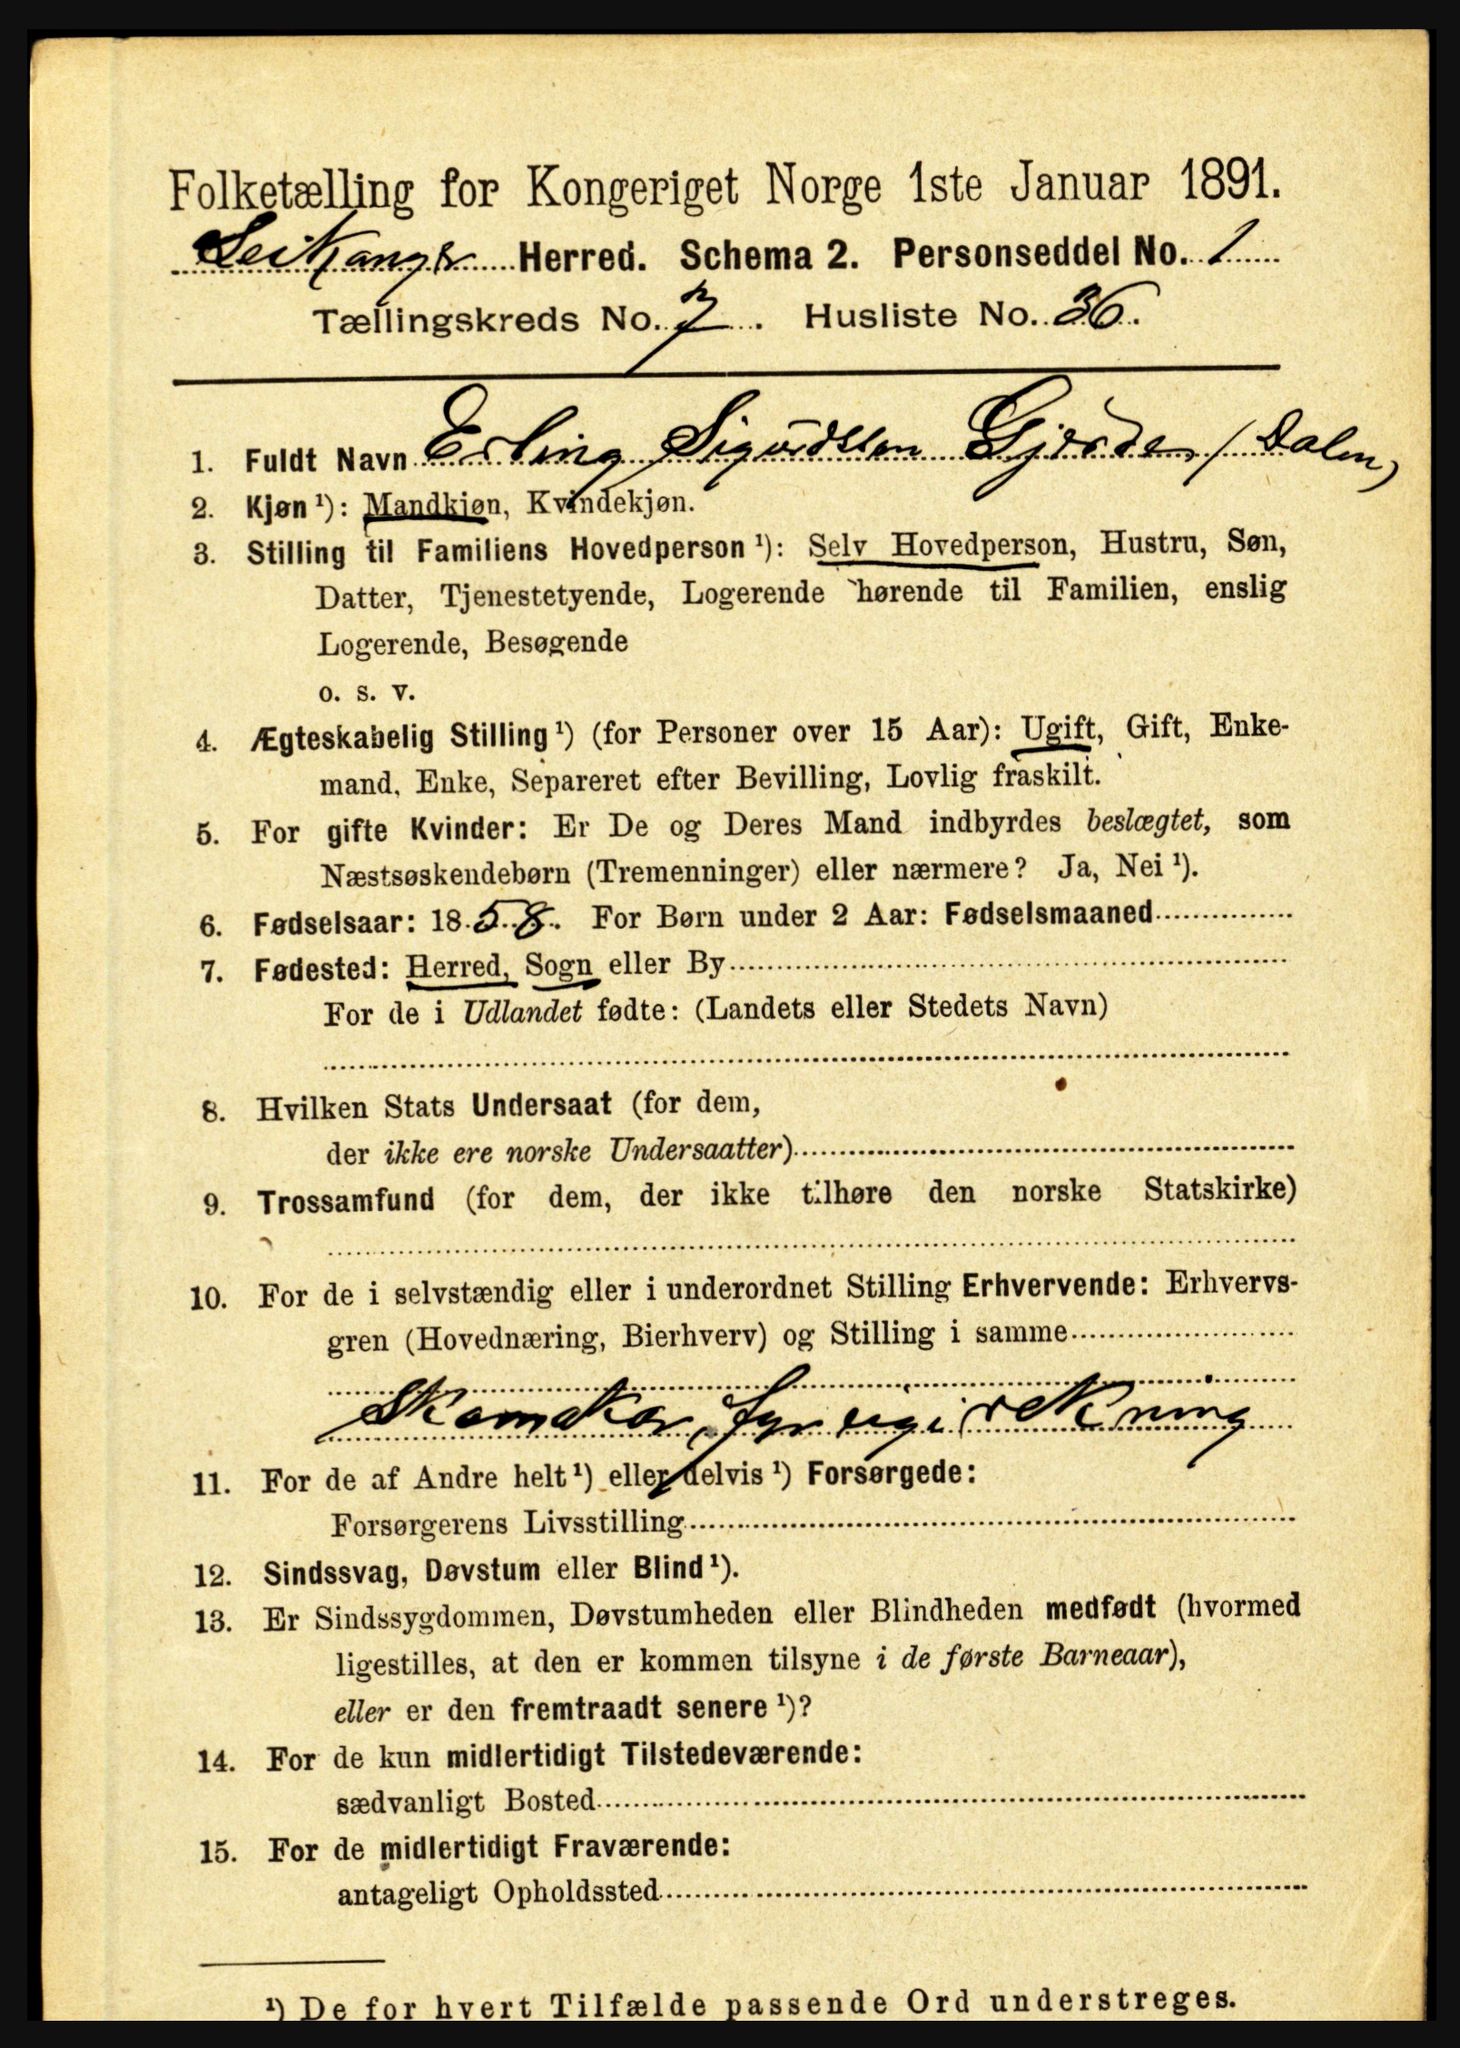 Folketælling for Kongeriget Norge 1ste Januar 1891.
Leikanger Herred. Schema 2. Personseddel No. 1
Tællingskreds No. 7. Husliste No. 36.
1. Fuldt Navn Erling Sigurdssen Gjerde / Dalen,
2. Kjøn ¹): Mandkjøn, Kvindekjøn.
3. Stilling til Familiens Hovedperson ¹): Selv Hovedperson, Hustru, Søn,
Datter, Tjenestetyende, Logerende hørende til Familien, enslig
Logerende, Besøgende
o. s. v.
4. Ægteskabelig Stilling ¹) (for Personer over 15 Aar): Ugift, Gift, Enke-
mand, Enke, Separeret efter Bevilling, Lovlig fraskilt.
5. For gifte Kvinder: Er De og Deres Mand indbyrdes beslægtet, som
Næstsøskendebørn (Tremenninger) eller nærmere? Ja, Nei ¹).
6. Fødselsaar: 1858. For Børn under 2 Aar: Fødselsmaaned
7. Fødested: Herred, Sogn eller By
For de i Udlandet fødte: (Landets eller Stedets Navn)
8. Hvilken Stats Undersaat (for dem,
der ikke ere norske Undersaatter)
9. Trossamfund (for dem, der ikke tilhøre den norske Statskirke)
10. For de i selvstændig eller i underordnet Stilling Erhvervende: Erhvervs-
gren (Hovednæring, Bierhverv) og Stilling i samme
Skomaker for eigi rekning
11. For de af Andre helt ¹) eller delvis ¹) Forsørgede:
Forsørgerens Livsstilling
12. Sindssvag, Døvstum eller Blind ¹).
13. Er Sindssygdommen, Døvstumheden eller Blindheden medfødt (hvormed
ligestilles, at den er kommen tilsyne i de første Barneaar),
eller er den fremtraadt senere ¹)?
14. For de kun midlertidigt Tilstedeværende:
sædvanligt Bosted
15. For de midlertidigt Fraværende:
antageligt Opholdssted
¹) De for hvert Tilfælde passende Ord understreges.